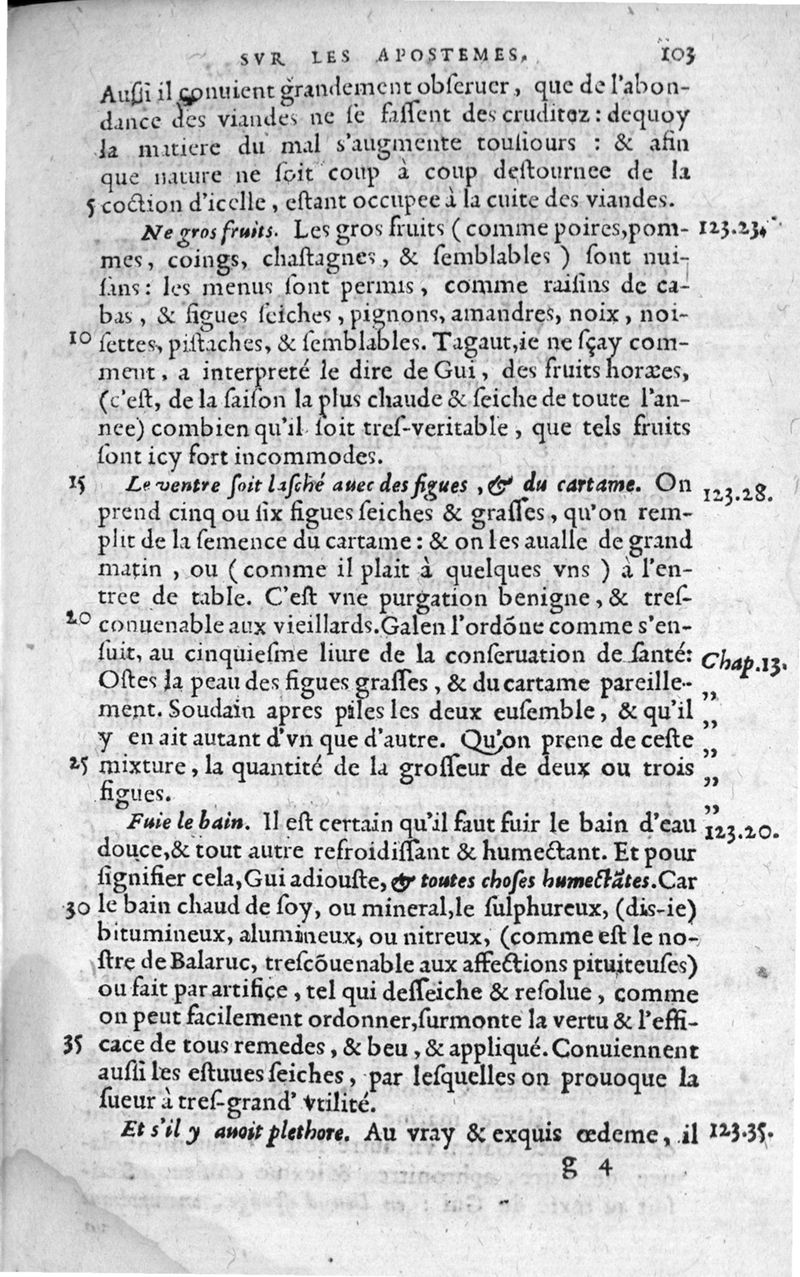 SVR LES APOSTEMES. 103
Auſſi il conuient grandement obſeruer, que de l'abon-
dance des viandes ne ſe faſſent des cruditez : dequoy
la matiere du mal s'augmente touſiours : & afin
que nature ne ſoit coup à coup deſtournee de la
5 coction d'icelle, eſtant occupee à la cuite des viandes.
Ne gros fruits. Les gros fruits (comme poires, pom- 123.23.
mes, coings, chaſtagnes, & ſemblables) ſont nui-
ſans : les menus ſont permis, comme raiſins de ca-
bas, & figues ſeiches, pignons, amandres, noix, noi-
10 ſettes, piſtaches, & ſemblables. Tagaut, ie ne ſçay com-
ment, a interpreté le dire de Gui, des fruits horæes,
(c'eſt, de la ſaiſon la plus chaude & ſeiche de toute l'an-
nee) combien qu'il ſoit treſ-veritable, que tels fruits
ſont icy fort incommodes.
15 Le ventre ſoit laſché auec des figues, & du cartame. On 123.28.
prend cinq ou ſix figues ſeiches & graſſes, qu'on rem-
plit de la ſemence du cartame : & on les aualle de grand
matin, ou (comme il plait à quelques vns) à l'en-
tree de table. C'eſt vne purgation benigne, & treſ-
20 conuenable aux vieillards. Galen l'ordōne comme s'en-
ſuit, au cinquieſme liure de la conſeruation de ſanté: Chap.13.
Oſtes la peau des figues graſſes, & du cartame pareille- „
ment. Soudain apres piles les deux euſemble, & qu'il „
y en ait autant d'vn que d'autre. Qu'on prene de ceſte „
25 mixture, la quantité de la groſſeur de deux ou trois „
figues. „
Fuie le bain. Il eſt certain qu'il faut fuir le bain d'eau 123.20.
douce, & tout autre refroidiſſant & humectant. Et pour
ſignifier cela, Gui adiouſte, & toutes choſes humectātes. Car
30 le bain chaud de ſoy, ou mineral, le ſulphureux, (dis-ie)
bitumineux, alumineux, ou nitreux, (comme eſt le no-
ſtre de Balaruc, treſcōuenable aux affections pituiteuſes)
ou fait par artifice, tel qui deſſeiche & reſolue, comme
on peut facilement ordonner, ſurmonte la vertu & l'effi-
35 cace de tous remedes, & beu, & appliqué. Conuiennent
auſſi les eſtuues ſeiches, par leſquelles on prouoque la
ſueur à treſ-grand' vtilité.
Et s'il y auoit plethore. Au vray & exquis œdeme, il 123.35.
g 4